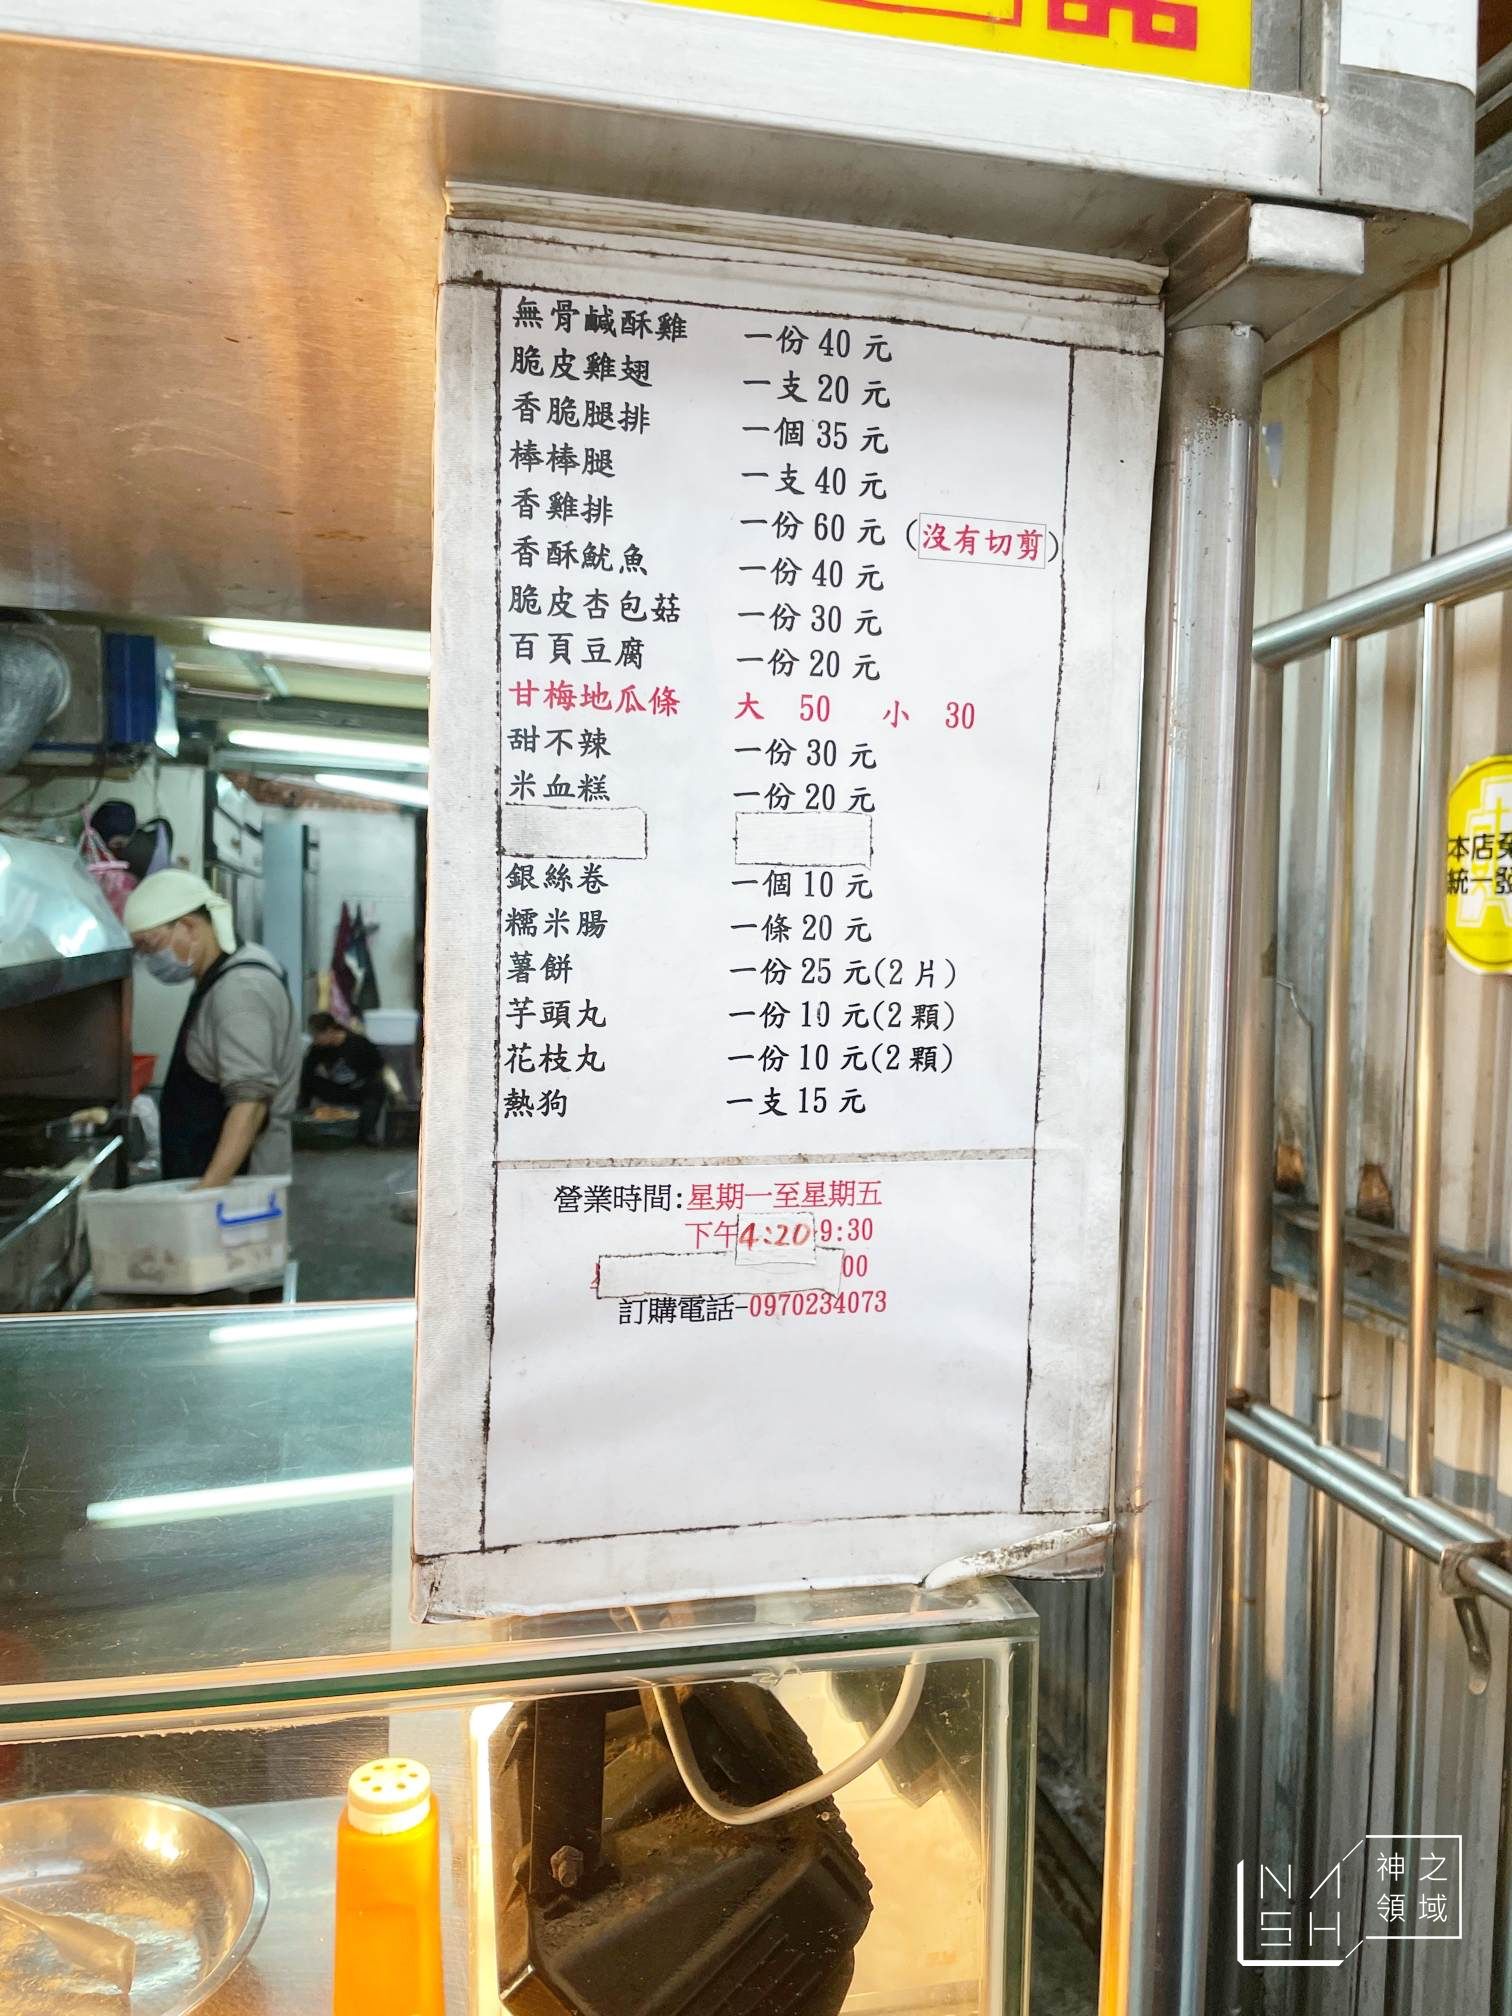 無骨鹹酥雞 一份 40 元
脆皮雞翅 一支 20 元
香脆腿排 一個 35 元
棒棒腿 一支 40 元
香雞排 一份 60 元 (沒有切剪)
香酥魷魚 一份 40 元
脆皮杏包菇 一份 30 元
百頁豆腐 一份 20 元
甘梅地瓜條 大 50 小 30
甜不辣 一份 30 元
米血糕 一份 20 元
銀絲卷 一個 10 元
糯米腸 一條 20 元
薯餅 一份 25 元(2 片)
芋頭丸 一份 10 元(2 顆)
花枝丸 一份 10 元(2 顆)
熱狗 一支 15 元
營業時間:星期一至星期五
下午4:20-9:30
00
訂購電話-0970234073
本店免
統一發
NASH
神之
領域